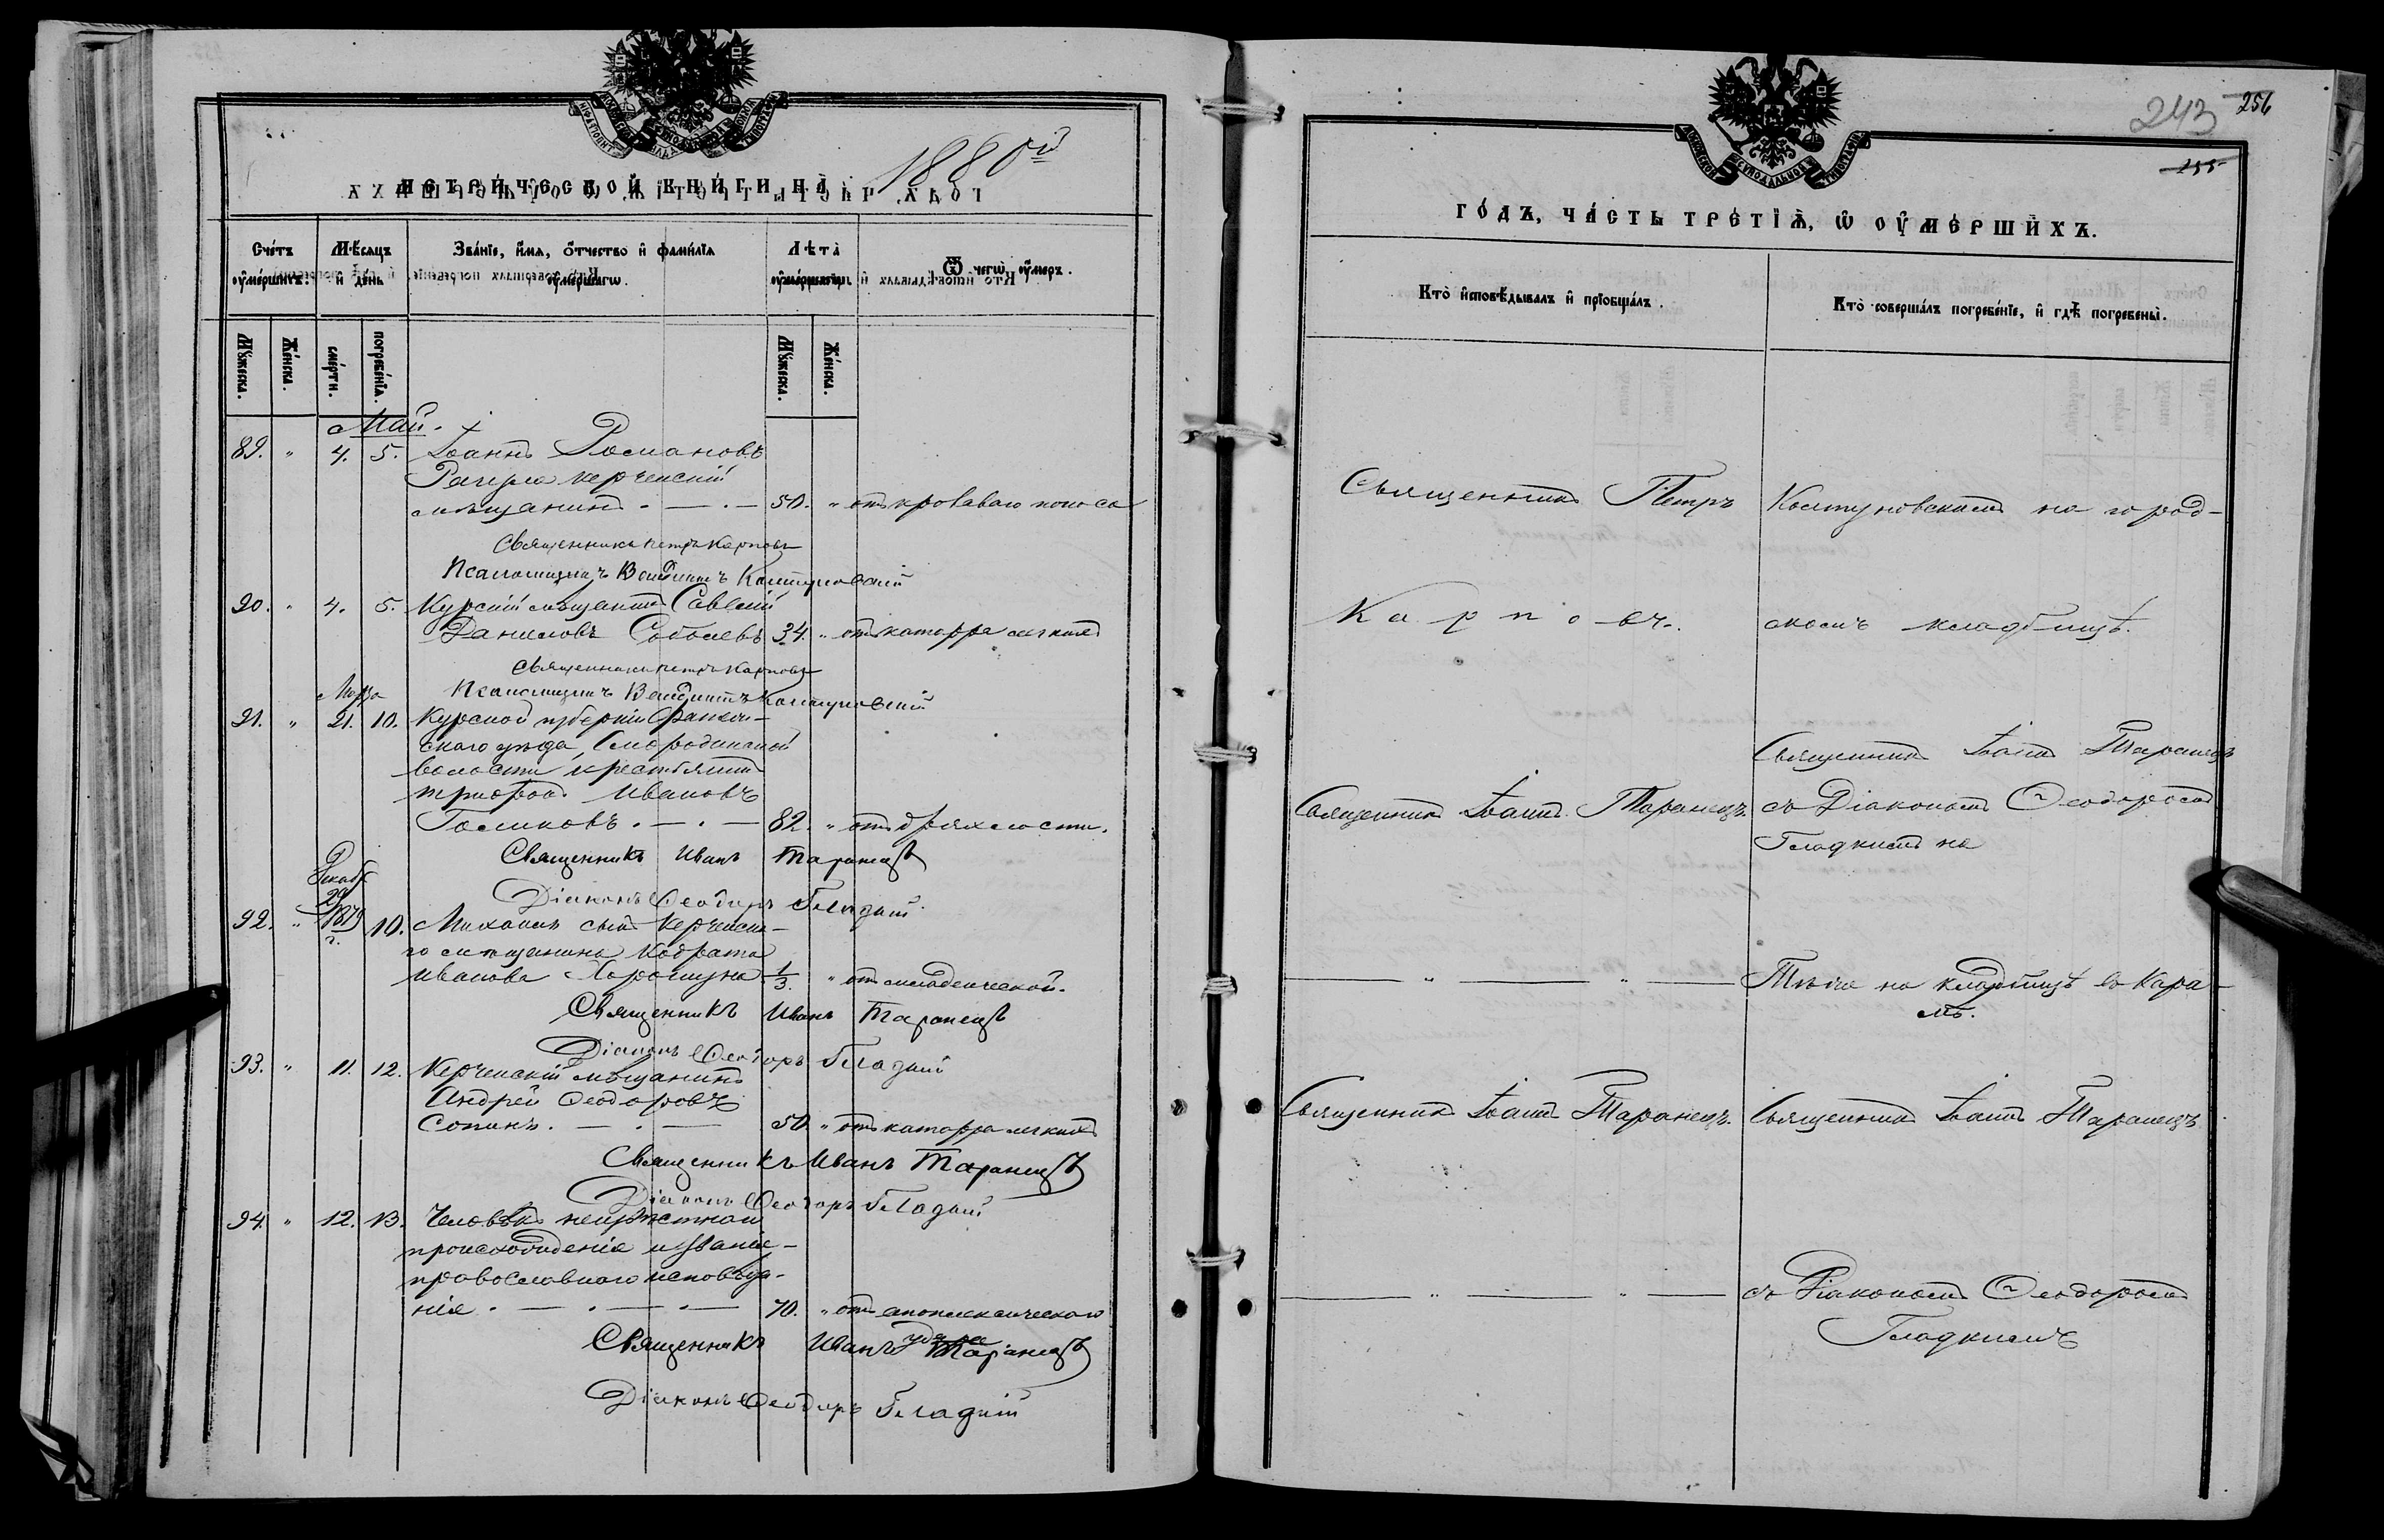 МЕТРИ́ЧЕСКОЙ КНИ́ГИ НА̀ 1880й
Сче́тъ оу҆ме́ршихъ.
Мѣ́сяцъ и҆ де́нь
Зва́нїе, и҆́мѧ, ѻ҆́тчество и҆ фами́лїѧ оу҆ме́ршагѡ.
Лѣ́та̀ оу҆ме́ршагѡ.
Ѿ чегѡ̀ оу҆́меръ.
Мꙋ́жеска.
Же́нска.
сме́рти.
погребе́нїѧ.
Мꙋ́жеска.
Же́нска.
Май.
89. " 4. 5. Іоаннъ Романовъ
керченскій
мѣщанинъ. — . — 50. " отъ кроваваго поноса
Священникъ Петръ Карповъ
Псаломщикъ Колтуновскій
90. " 4. 5. Курскій мѣщанинъ Савелій
Даниловъ Соболевъ 34. " отъ катарра легкихъ
Священникъ Петръ Карповъ
Псаломщикъ Колтуновскій
Марта
91. " 21. 10. Курской губерніи
скаго уѣзда, Смородинской
волости крестьянинъ
Ивановъ
Голиковъ. — . — 82. " отъ дряхлости.
Священникъ Иванъ Таранецъ
Діаконъ Ѳеодоръ Гладкій
Декабр
29
92. " 1879 г. 10. Михаилъ сынъ Керченска-
го мѣщанина Кодрата
Иванова 1/3. " отъ младенческой.
Священникъ Иванъ Таранецъ
Діаконъ Ѳеодоръ Гладкій
93. " 11. 12. Керченскій мѣщанинъ
Андрей Ѳеодоровъ
Сопинъ. — . — 50. " отъ катарра легкихъ
Священникъ Иванъ Таранецъ
Діаконъ Ѳеодоръ Гладкій
94. " 12. 13. Человѣкъ неизвѣстнаго
происхожденія и званія-
православнаго исповѣда-
нія. — . — . — 70. " отъ апоплексическаго
удара
Священникъ Иванъ Таранецъ
Діаконъ Ѳеодоръ Гладкій
243 256
155
ГО́ДЪ, ЧА́СТЬ ТРЕ́ТЇѦ, Ѡ҆ ОУ҆МЕ́РШИХЪ.
Кто̀ и҆сповѣ́дывалъ и҆ прїобща́лъ.
Кто̀ соверша́лъ погребе́нїе, и҆ гдѣ̀ погребены̀.
Священникъ Петръ Колтуновскимъ на город-
Карповъ. скомъ кладбищѣ.
Священникъ Іоаннъ Таранецъ
Священникъ Іоаннъ Таранецъ. съ Діакономъ Ѳеодоромъ
Гладкимъ на
— " — " — на кладбищѣ въ Кара-
Священникъ Іоаннъ Таранецъ. Священникъ Іоаннъ Таранецъ
— " — " — съ Діакономъ Ѳеодоромъ
Гладкимъ